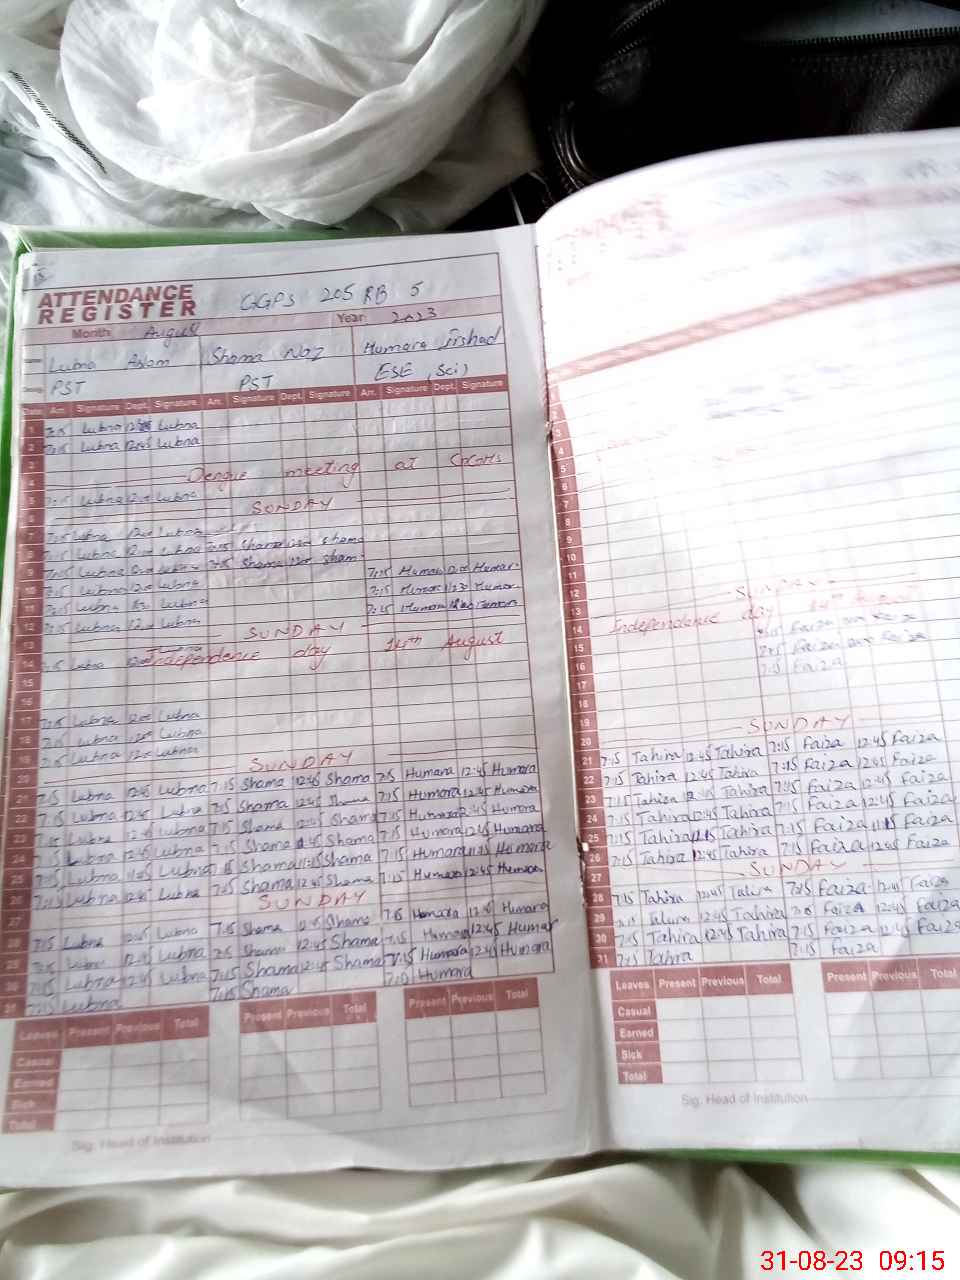 ATTENDANCE
REGISTER
GGPS 205 RB 5
Month August Year 2023
Lubna Aslam Shama Naz Humara Irshad
PST PST ESE (Sci)
Date Arr. Signature Dept. Signature Arr. Signature Dept. Signature Arr. Signature Dept. Signature
1 7:15 Lubna Lubna
2 7:15 Lubna 12:45 Lubna
3
4 Dengue meeting at
5 7:15 Lubna 12:00 Lubna
6 SUNDAY
7 7:15 Lubna 12:00 Lubna
8 7:15 Lubna 12:00 Lubna 7:15 Shama Shama
9 7:15 Lubna Lubna 7:15 Shama 12:00 Sham
10 7:15 Lubna 12:00 Lubna 7:15 Humara 12:00 Humara
11 7:15 Lubna Lubna 7:15 Humara 11:30 Humara
12 7:15 Lubna 12:00 Lubna 7:15 Humara Humara
13 SUNDAY
14 7:15 Lubna Independence day 14th August
15
16
17 7:15 Lubna 12:00 Lubna
18 7:15 Lubna 12:00 Lubna
19 7:15 Lubna 12:00 Lubna
20 SUNDAY
21 7:15 Lubna 12:45 Lubna 7:15 Shama 12:45 Shama 7:15 Humara 12:45 Humara
22 7:15 Lubna 12:45 Lubna 7:15 Shama 12:45 Shama 7:15 Humara 12:45 Humara
23 7:15 Lubna 12:45 Lubna 7:15 Shama 12:45 Shama 7:15 Humara 12:45 Humara
24 7:15 Lubna 12:45 Lubna 7:15 Shama 12:45 Shama 7:15 Humara 12:45 Humara
25 7:15 Lubna 11:15 Lubna 7:15 Shama 11:15 Shama 7:15 Humara 11:15 Humara
26 7:15 Lubna 12:45 Lubna 7:15 Shama 12:45 Shama 7:15 Humara 12:45 Humara
27 SUNDAY
28 7:15 Lubna 12:45 Lubna 7:15 Shama 12:45 Shama 7:15 Humara 12:45 Humara
29 7:15 Lubna 12:45 Lubna 7:15 Shama 12:45 Shama 7:15 Humara 12:45 Humar
30 7:15 Lubna 12:45 Lubna 7:15 Shama 12:45 Shama 7:15 Humara 12:45 Humara
31 7:15 Lubna 7:15 Shama 7:15 Humara
Leaves Present Previous Total Present Previous Total Present Previous Total
Casual
Earned
Sick
Total
Sig. Head of Institution
2
3
4
5
6
7
8
9
10
11
12
13 SUNDAY
14 Independence day 14th
15 7:15 Faiza Faiza
16 7:15 Faiza
17
18
19
20 SUNDAY
21 7:15 Tahira 12:45 Tahira 7:15 Faiza 12:45 Faiza
22 7:15 Tahira 12:45 Tahira 7:15 Faiza 12:45 Faiza
23 7:15 Tahira 12:45 Tahira 7:15 Faiza 12:45 Faiza
24 7:15 Tahira 12:45 Tahira 7:15 Faiza 12:45 Faiza
25 7:15 Tahira 11:15 Tahira 7:15 Faiza 11:15 Faiza
26 7:15 Tahira 12:45 Tahira 7:15 Faiza 12:45 Faiza
27 SUNDAY
28 7:15 Tahira 12:45 Tahira 7:15 Faiza 12:45 Faiza
29 7:15 Tahira 12:45 Tahira 7:15 Faiza 12:45 Faiza
30 7:15 Tahira 12:45 Tahira 7:15 Faiza 12:45 Faiza
31 7:15 Tahira 7:15 Faiza
Leaves Present Previous Total Present Previous Total
Casual
Earned
Sick
Total
Sig. Head of Institution
31-08-23 09:15